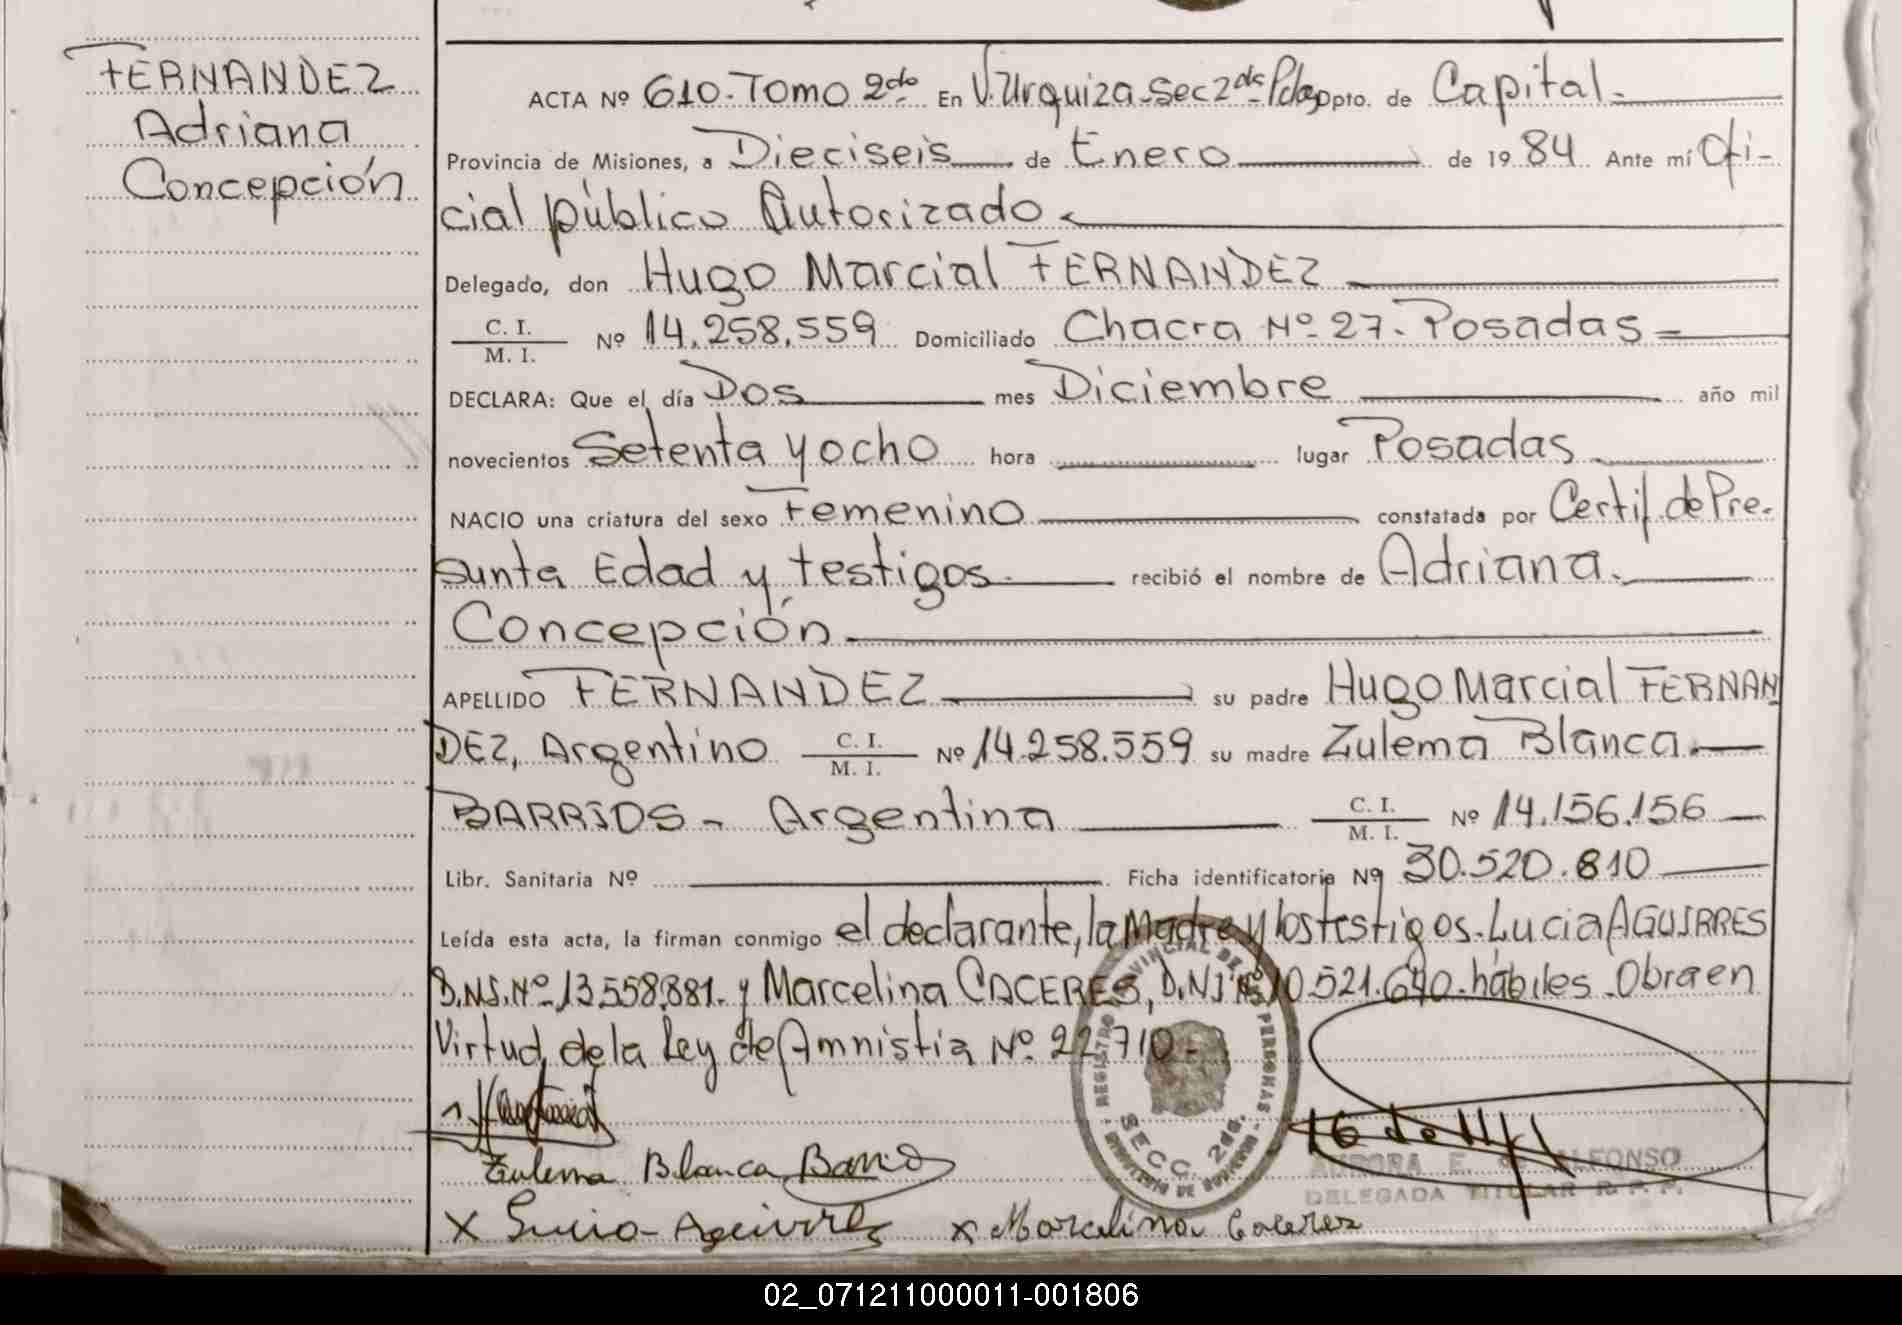 FERNANDEZ
Adriana
Concepción
ACTA Nº 610.Tomo 2do En V. Urquiza.Sec 2da Pdas Dpto. de Capital.
Provincia de Misiones, a Dieciseis de Enero de 19 84 Ante mí Ofi-
cial público Autorizado
Delegado, don Hugo Marcial FERNANDEZ
C. I.
M. I. Nº 14.258.559 Domiciliado Chacra Nº 27. Posadas
DECLARA: Que el día Dos mes Diciembre año mil
novecientos Setenta y ocho hora lugar Posadas
NACIO una criatura del sexo Femenino constatada por Certif. de Pre-
sunta Edad y testigos recibió el nombre de Adriana
Concepción
APELLIDO FERNANDEZ su padre Hugo Marcial FERNAN
DEZ, Argentino C. I.
M. I. Nº 14.258.559 su madre Zulema Blanca
BARRIOS - Argentina C. I.
M. I. Nº 14.156.156
Libr. Sanitaria Nº Ficha identificatoria Nº 30.520.810
Leída esta acta, la firman conmigo el declarante, la Madre y los testigos. Lucia AGUIRRES
D.N.I. Nº 13.558.881. y Marcelina CACERES, D.N.I. Nº 10.521.640. hábiles. Obra en
Virtud de la Ley de Amnistia Nº 22.710-
Zulema Blanca Barrios
x Lucia Aguirres x Marcelina Caceres
REGISTRO PROVINCIAL DE LAS PERSONAS
SECC. 2da.
MINISTERIO DE GOBIERNO
AURORA E. de ALFONSO
DELEGADA TITULAR R. P. P.
02_071211000011-001806